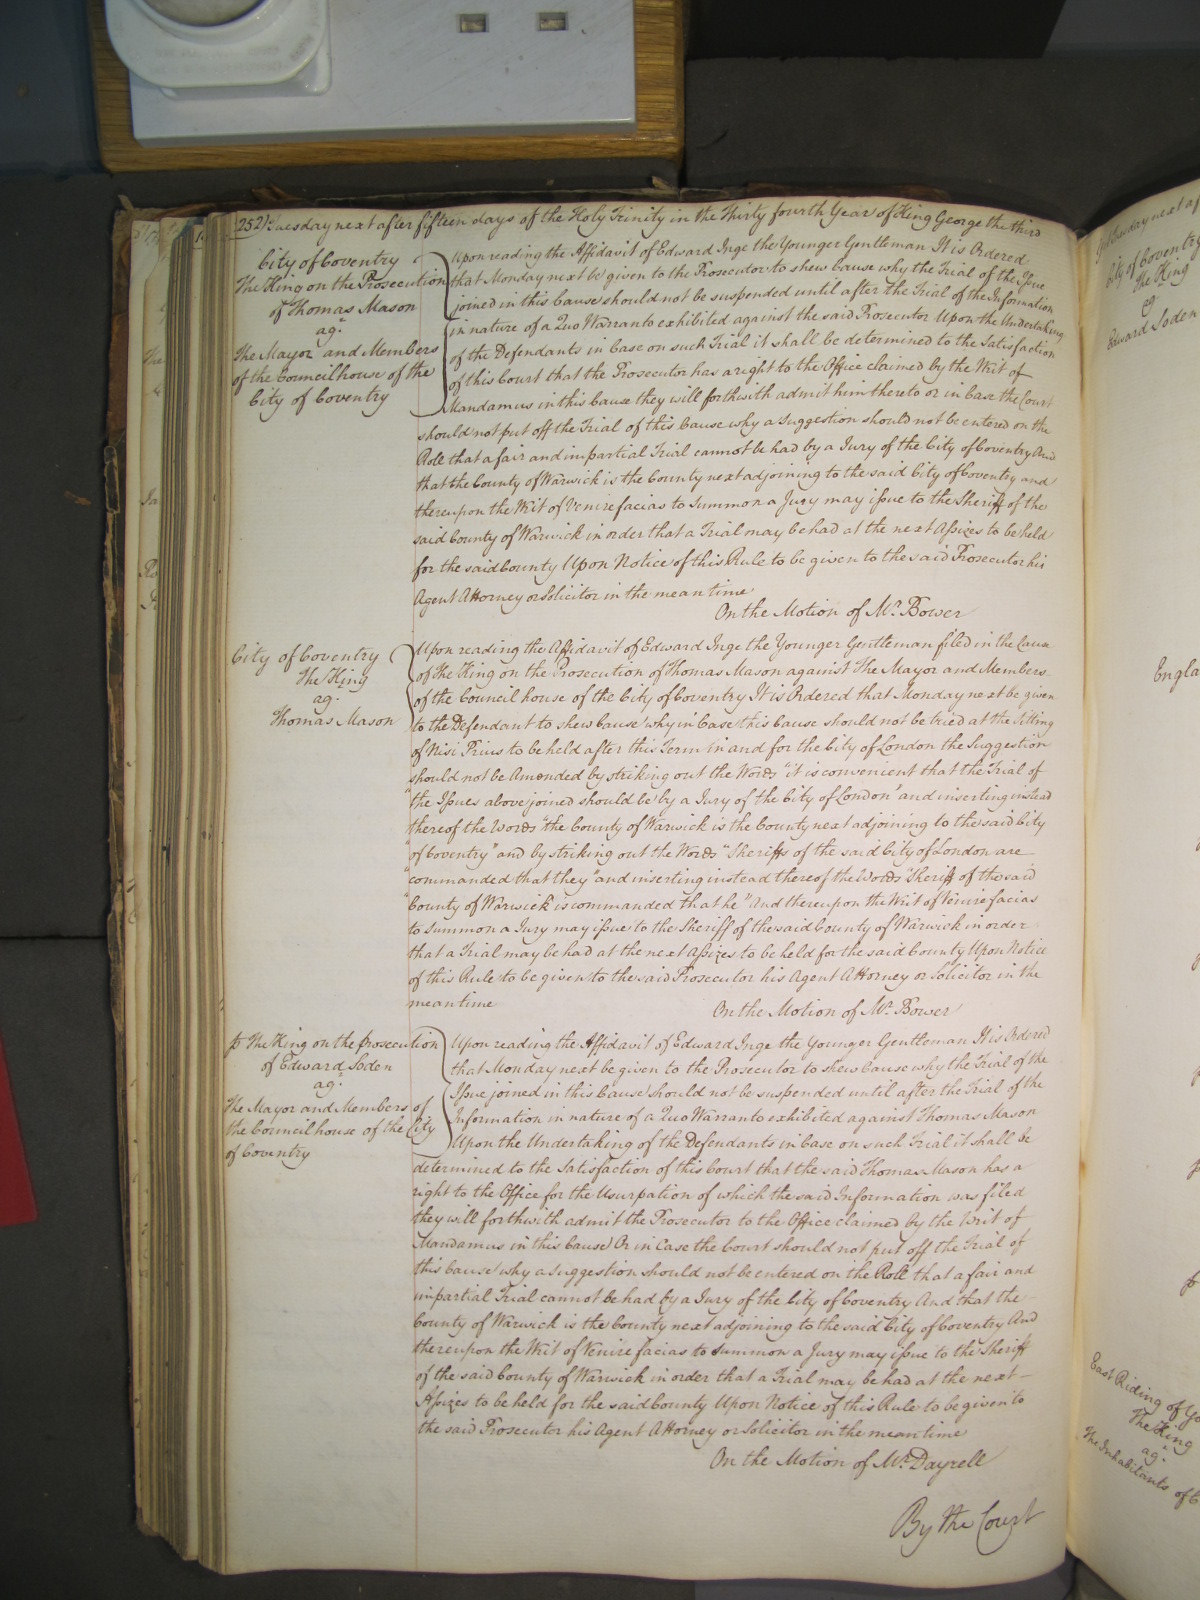 252) Tuesday next after fifteen days of the Holy Trinity in the Thirty fourth Year of King George the third
City of Coventry
The King on the Prosecution
of Thomas Mason
agt.
The Mayor and Members
of the Councilhouse of the
City of Coventry
Upon reading the Affidavit of Edward Inge the Younger Gentleman It is Ordered
that Monday next be given to the Prosecutor to shew Cause why the Trial of the Issue
joined in this Cause should not be suspended until after the Trial of the Information
in nature of a Quo Warranto exhibited against the said Prosecutor Upon the Undertaking
of the Defendants in Case on such Trial it shall be determined to the Satisfaction
of this Court that the Prosecutor has a right to the Office claimed by the Writ of
Mandamus in this Cause they will forthwith admit him thereto or in Case the Court
should not put off the Trial of this Cause why a Suggestion should not be entered on the
Roll that a fair and impartial Trial cannot be had by a Jury of the City of Coventry And
that the County of Warwick is the County next adjoining to the said City of Coventry and
thereupon the Writ of Venire facias to Summon a Jury may issue to the Sheriff of the
said County of Warwick in order that a Trial may be had at the next Assizes to be held
for the said County Upon Notice of this Rule to be given to the said Prosecutor his
Agent Attorney or Solicitor in the mean time
On the Motion of Mr. Bower
City of Coventry
The King
agt.
Thomas Mason
Upon reading the Affidavit of Edward Inge the Younger Gentleman filed in the Cause
of The King on the Prosecution of Thomas Mason against The Mayor and Members
of the Council house of the City of Coventry It is Ordered that Monday next be given
to the Defendant to shew Cause why in Case this Cause should not be tried at the Sitting
of Nisi Prius to be held after this Term in and for the City of London the Suggestion
should not be Amended by striking out the Words "it is convenient that the Trial of
"the Issues above joined should be by a Jury of the City of London" and inserting instead
thereof the Words "the County of Warwick is the County next adjoining to the said City
"of Coventry" and by striking out the Words "Sheriffs of the said City of London are
"commanded that they" and inserting instead thereof the Words "Sheriff of the said
"County of Warwick is commanded that he" And thereupon the Writ of Venire facias
to Summon a Jury may issue to the Sheriff of the said County of Warwick in order
that a Trial may be had at the next Assizes to be held for the said County Upon Notice
of this Rule to be given to the said Prosecutor his Agent Attorney or Solicitor in the
mean time
On the Motion of Mr. Bower
The King on the prosecution
of Edward Soden
agt.
The Mayor and Members of
the Councilhouse of the City
of Coventry
Upon reading the Affidavit of Edward Inge the Younger Gentleman It is Ordered
that Monday next be given to the Prosecutor to shew Cause why the Trial of the
Issue joined in this Cause should not be suspended until after the Trial of the
Information in nature of a Quo Warranto exhibited against Thomas Mason
Upon the Undertaking of the Defendants in Case on such Trial it shall be
determined to the Satisfaction of this Court that the said Thomas Mason has a
right to the Office for the Usurpation of which the said Information was filed
they will forthwith admit the Prosecutor to the Office claimed by the Writ of
Mandamus in this Cause Or in Case the Court should not put off the Trial of
this Cause why a Suggestion should not be entered on the Roll that a fair and
impartial Trial cannot be had by a Jury of the City of Coventry And that the
County of Warwick is the County next adjoining to the said City of Coventry And
thereupon the Writ of Venire facias to Summon a Jury may issue to the Sheriff
of the said County of Warwick in order that a Trial may be had at the next
Assizes to be held for the said County Upon Notice of this Rule to be given to
the said Prosecutor his Agent Attorney or Solicitor in the mean time
On the Motion of Mr. Dayrell
By the Court
City of Coventry
The King
agt.
Edward Soden
Engla
East Riding of Yo
The King
agt.
The Inhabitants of